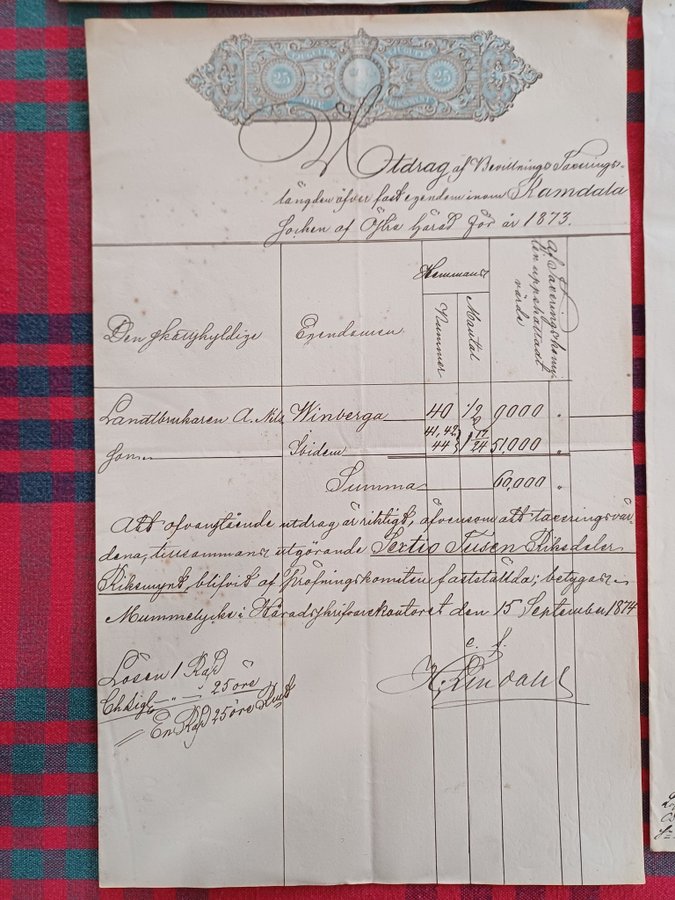 CENTUM
25
25
ÖRE
Utdrag af Bevillnings Taxerings-
längden öfver fast egendom inom Ramdala
Socken af Östra Härad för år 1873.
Den skattskyldige
Egendomen
Hemmanets
Nummer
Mantal
Af Taxeringskomi-
tén uppskattadt
värde
Landtbrukaren A. Nils Winberga 40 1/2 9000 "
son Ibidem 41, 42, 44 1 17/24 51,000 "
Summa 60,000 "
Att ofvanstående utdrag är riktigt, äfvensom att taxeringsvär-
dena, tillsammans utgörande Sextio Tusen Riksdaler
Riksmynt, blifvit af Pröfningskomitén fastställda; betygas
Mummelycke i Häradsskrifvarekontoret den 15 September 1874
Lösen 1 Rdr
Ch. Sigl. " 25 öre
En Rdr 25 öre